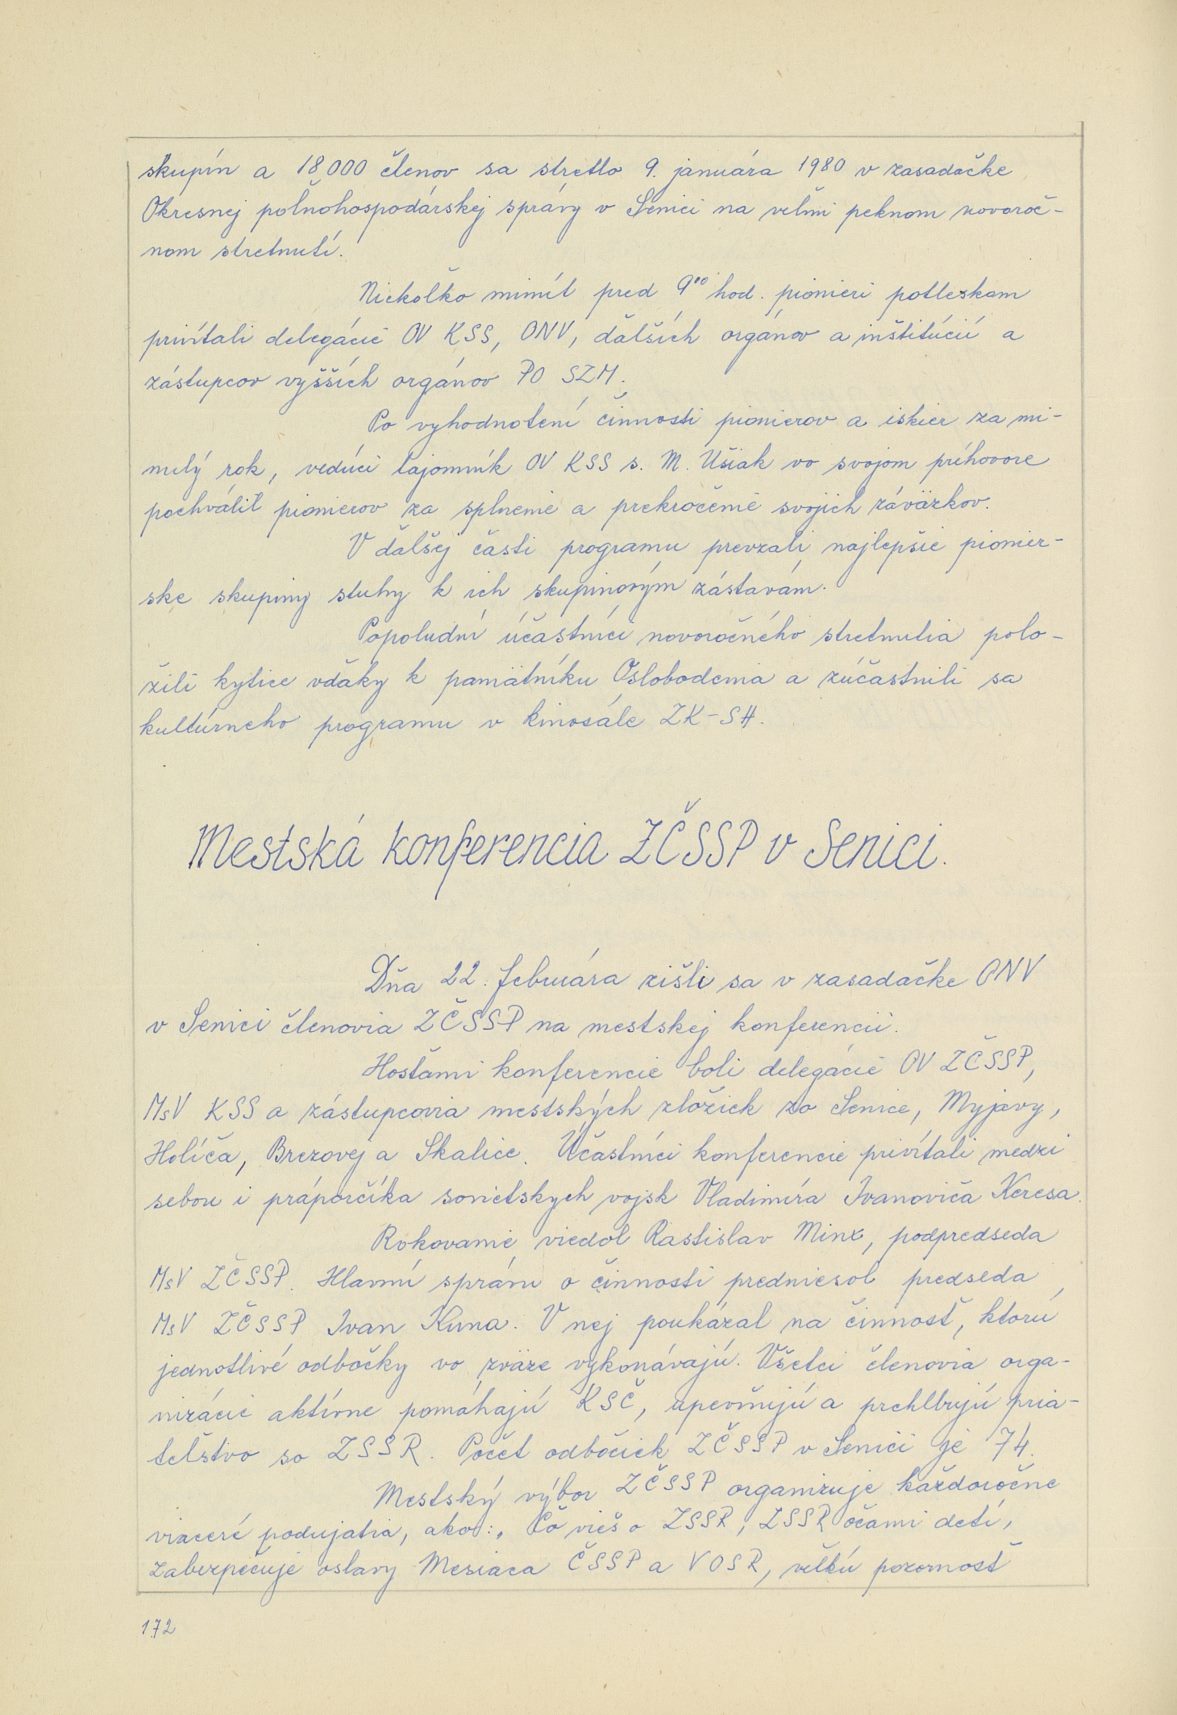 skupín a 18.000 členov sa stretlo 9. januára 1980 v zasadačke
Okresnej poľnohospodárskej správy v Senici na veľmi peknom novoroč-
nom stretnutí.
Niekoľko minút pred 9⁰⁰ hod. pionieri potleskom
privítali delegácie OV KSS, ONV, ďalších orgánov a inštitúcií a
zástupcov vyšších orgánov PO SZM.
Po vyhodnotení činnosti pionierov a iskier za mi-
nulý rok, vedúci tajomník OV KSS s. M. Ušiak vo svojom príhovore
pochválil pionierov za splnenie a prekročenie svojich záväzkov.
V ďalšej časti programu prevzali najlepšie pionier-
ske skupiny stuhy k ich skupinovým zástavám.
Popoludní účastníci novoročného stretnutia polo-
žili kytice vďaky k pamätníku Oslobodenia a zúčastnili sa
kultúrneho programu v kinosále ZK-SH.
Mestská konferencia ZČSSP v Senici.
Dňa 22. februára zišli sa v zasadačke ONV
v Senici členovia ZČSSP na mestskej konferencii.
Hosťami konferencie boli delegácie OV ZČSSP,
MsV KSS a zástupcovia mestských zložiek zo Senice, Myjavy,
Holíča, Brezovej a Skalice. Účastníci konferencie privítali medzi
sebou i práporčíka sovietskych vojsk Vladimíra Ivanoviča Keresa.
Rokovanie viedol Rastislav Minx, podpredseda
MsV ZČSSP. Hlavnú správu o činnosti predniesol predseda
MsV ZČSSP Ivan Kuna. V nej poukázal na činnosť, ktorú
jednotlivé odbočky vo zväze vykonávajú. Všetci členovia orga-
nizácie aktívne pomáhajú KSČ, upevňujú a prehlbujú pria-
teľstvo so ZSSR. Počet odbočiek ZČSSP v Senici je 74.
Mestský výbor ZČSSP organizuje každoročne
viaceré podujatia, ako: Čo vieš o ZSSR, ZSSR očami detí,
zabezpečuje oslavy Mesiaca ČSSP a VOSR, veľkú pozornosť
172